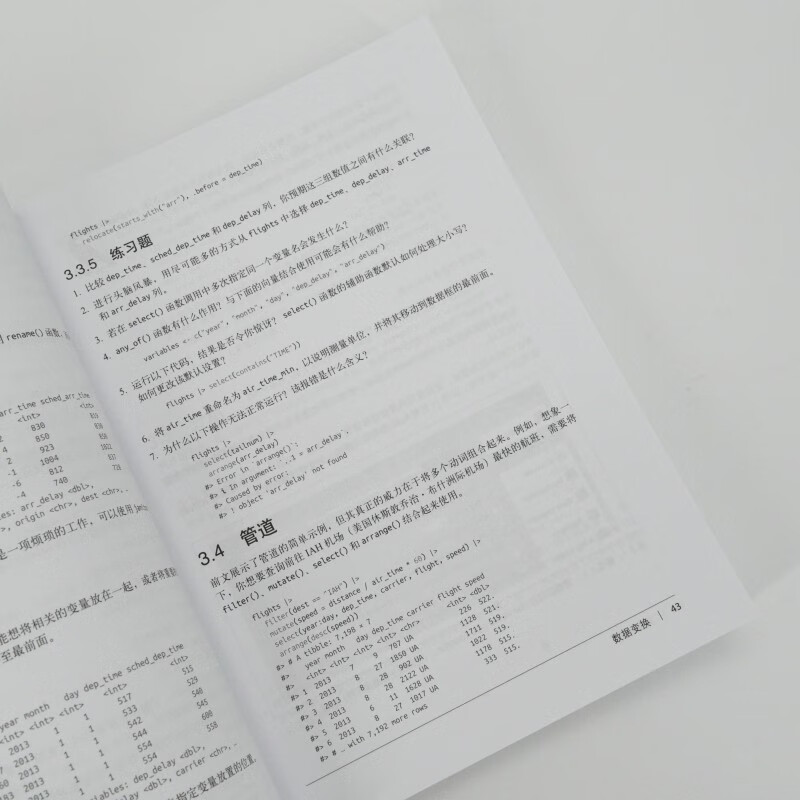 用 rename() 函数,
arr_time sched_arr_time
<int> <int>
830 819
850 830
2 923
1004 1022
-1 812 837
-6
-4 740 728
les: arr_delay <dbl>,
>, origin <chr>, dest <chr>,
是一项烦琐的工作，可以使用
能想将相关的变量放在一起，
至最前面。
year month day dep_time sched_dep_time
<int> <int> <int> <int> <int>
2013 1 1 517 515
2013 1 1 533
2013 1 1 542 540
2013 1 1 544 545
2013 1 1 554 600
2013 1 1 554 558
iables: dep_delay <dbl>,
delay <dbl>, carrier <chr>,
指定变量放置的位置
flights |>
relocate(starts_with("arr"), .before = dep_time)
3.3.5 练习题
1. 比较 dep_time、sched_dep_time 和 dep_delay 列，你预期这三组数值之间有什么关联？
2. 进行头脑风暴，用尽可能多的方式从 flights 中选择 dep_time、dep_delay、arr_time
和 arr_delay 列。
3. 若在 select() 函数调用中多次指定同一个变量名会发生什么？
4. any_of() 函数有什么作用？与下面的向量结合使用可能会有什么帮助？
variables <- c("year", "month", "day", "dep_delay", "arr_delay")
5. 运行以下代码，结果是否令你惊讶？select() 函数的辅助函数默认如何处理大小写？
如何更改该默认设置？
flights |> select(contains("TIME"))
6. 将 air_time 重命名为 air_time_min，以说明测量单位，并将其移动到数据框的最前面。
7. 为什么以下操作无法正常运行？该报错是什么含义？
flights |>
select(tailnum) |>
arrange(arr_delay)
#> Error in `arrange()`:
#> ℹ In argument: `..1 = arr_delay`.
#> Caused by error:
#> ! object 'arr_delay' not found
3.4 管道
前文展示了管道的简单示例，但其真正的威力在于将多个动词组合起来。例如，想象一
下，你想要查询前往 IAH 机场（美国休斯敦乔治·布什洲际机场）最快的航班，需要将
filter()、mutate()、select() 和 arrange() 结合起来使用。
flights |>
filter(dest == "IAH") |>
mutate(speed = distance / air_time * 60) |>
select(year:day, dep_time, carrier, flight, speed) |>
arrange(desc(speed))
#> # A tibble: 7,198 × 7
#> year month day dep_time carrier flight speed
#> <int> <int> <int> <int> <chr> <int> <dbl>
#> 1 2013 7 9 707 UA 226 522.
#> 2 2013 8 27 1850 UA 1128 521.
#> 3 2013 8 28 902 UA 1711 519.
#> 4 2013 8 28 2122 UA 1022 519.
#> 5 2013 6 11 1628 UA 1178 515.
#> 6 2013 8 27 1017 UA 333 515.
#> # … with 7,192 more rows
数据变换 | 43